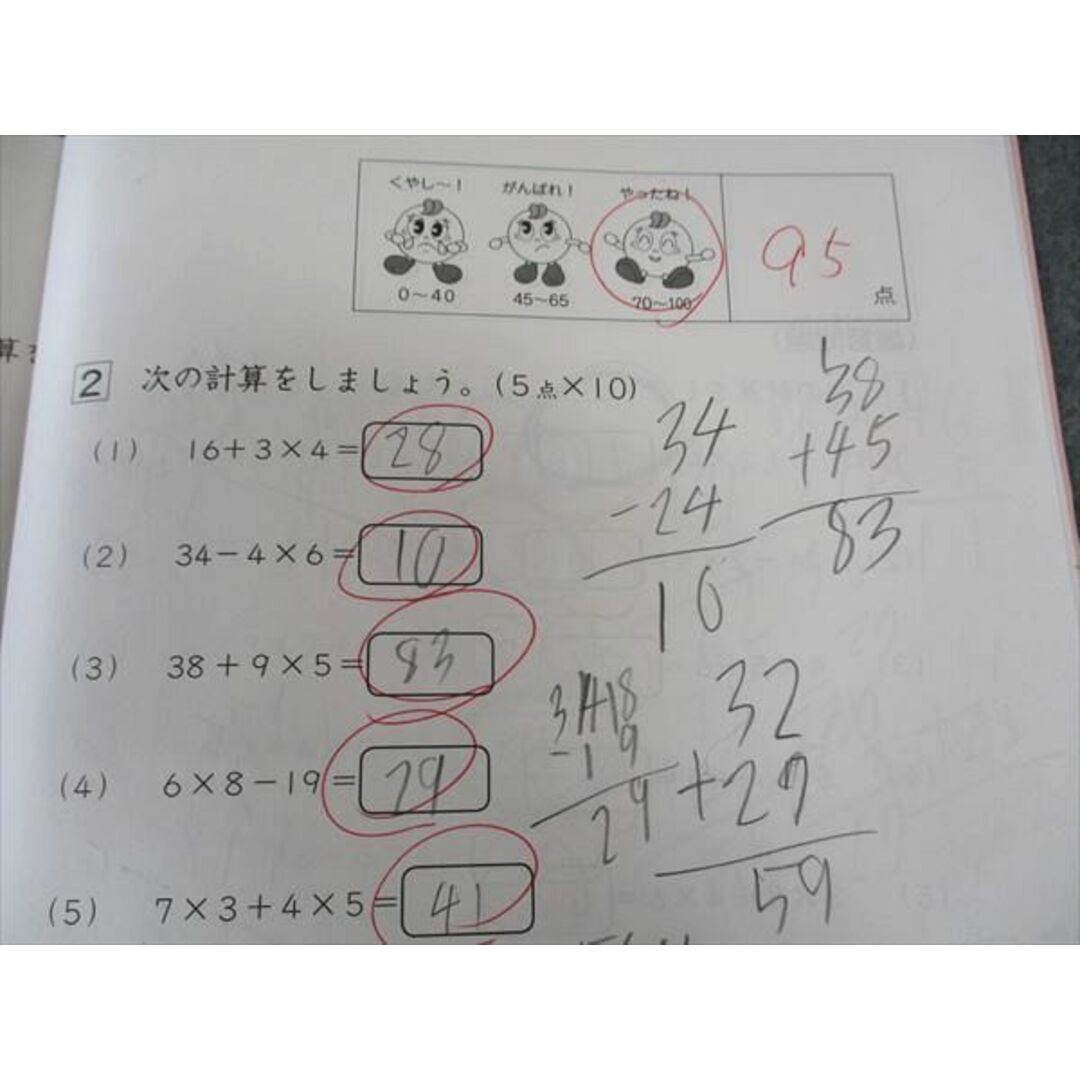 くやし～！ がんばれ！ やったね！
0～40 45～65 70～100 95点
2 次の計算をしましょう。(5点×10)
(1) 16+3×4=28
(2) 34-4×6=10
(3) 38+9×5=83
(4) 6×8-19=29
(5) 7×3+4×5=41
34
-24
10
38
+45
83
-19
29
32
+27
59
算